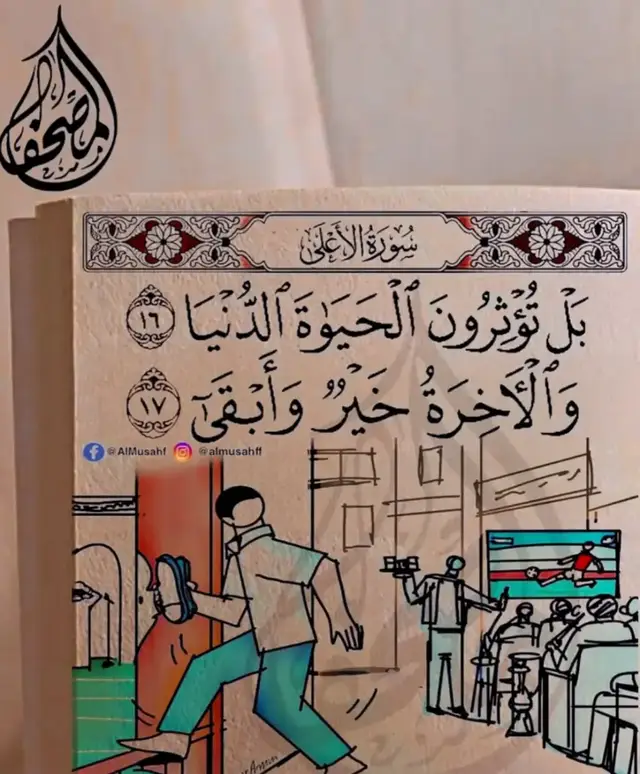 المصحف
سُورَةُ الأَعْلَى
بَلْ تُؤْثِرُونَ ٱلْحَيَوٰةَ ٱلدُّنْيَا ١٦
وَٱلْأَخِرَةُ خَيْرٌ وَأَبْقَىٰٓ ١٧
@AlMusahf @almusahff